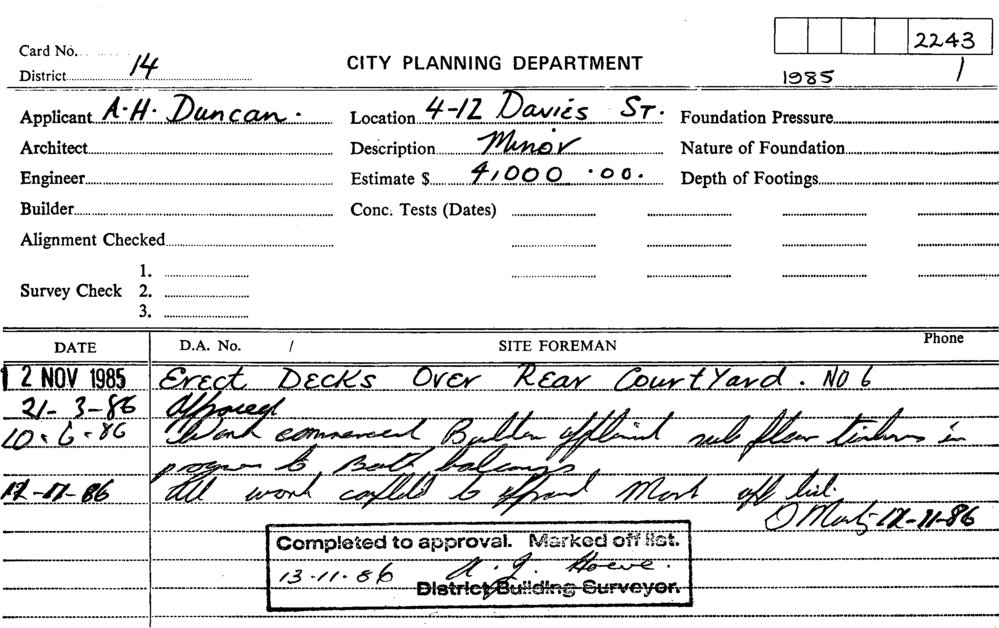 Card No.
2243
District 14
CITY PLANNING DEPARTMENT
1985 /
Applicant A.H. Duncan.
Location 4-12 Davies St.
Foundation Pressure
Architect
Description Minor
Nature of Foundation
Engineer
Estimate $ 4,000.00.
Depth of Footings
Builder
Conc. Tests (Dates)
Alignment Checked
Survey Check
1.
2.
3.
DATE
D.A. No. /
SITE FOREMAN
Phone
12 NOV 1985 Erect Decks Over Rear CourtYard. No 6
21-3-86 Approved
10-6-86 Work commenced Builder sub floor timbers in
progress to Both balconys
12-11-86 All work to approval Mark off list.
12-11-86
Completed to approval. Marked off list.
13-11-86
District Building Surveyor.